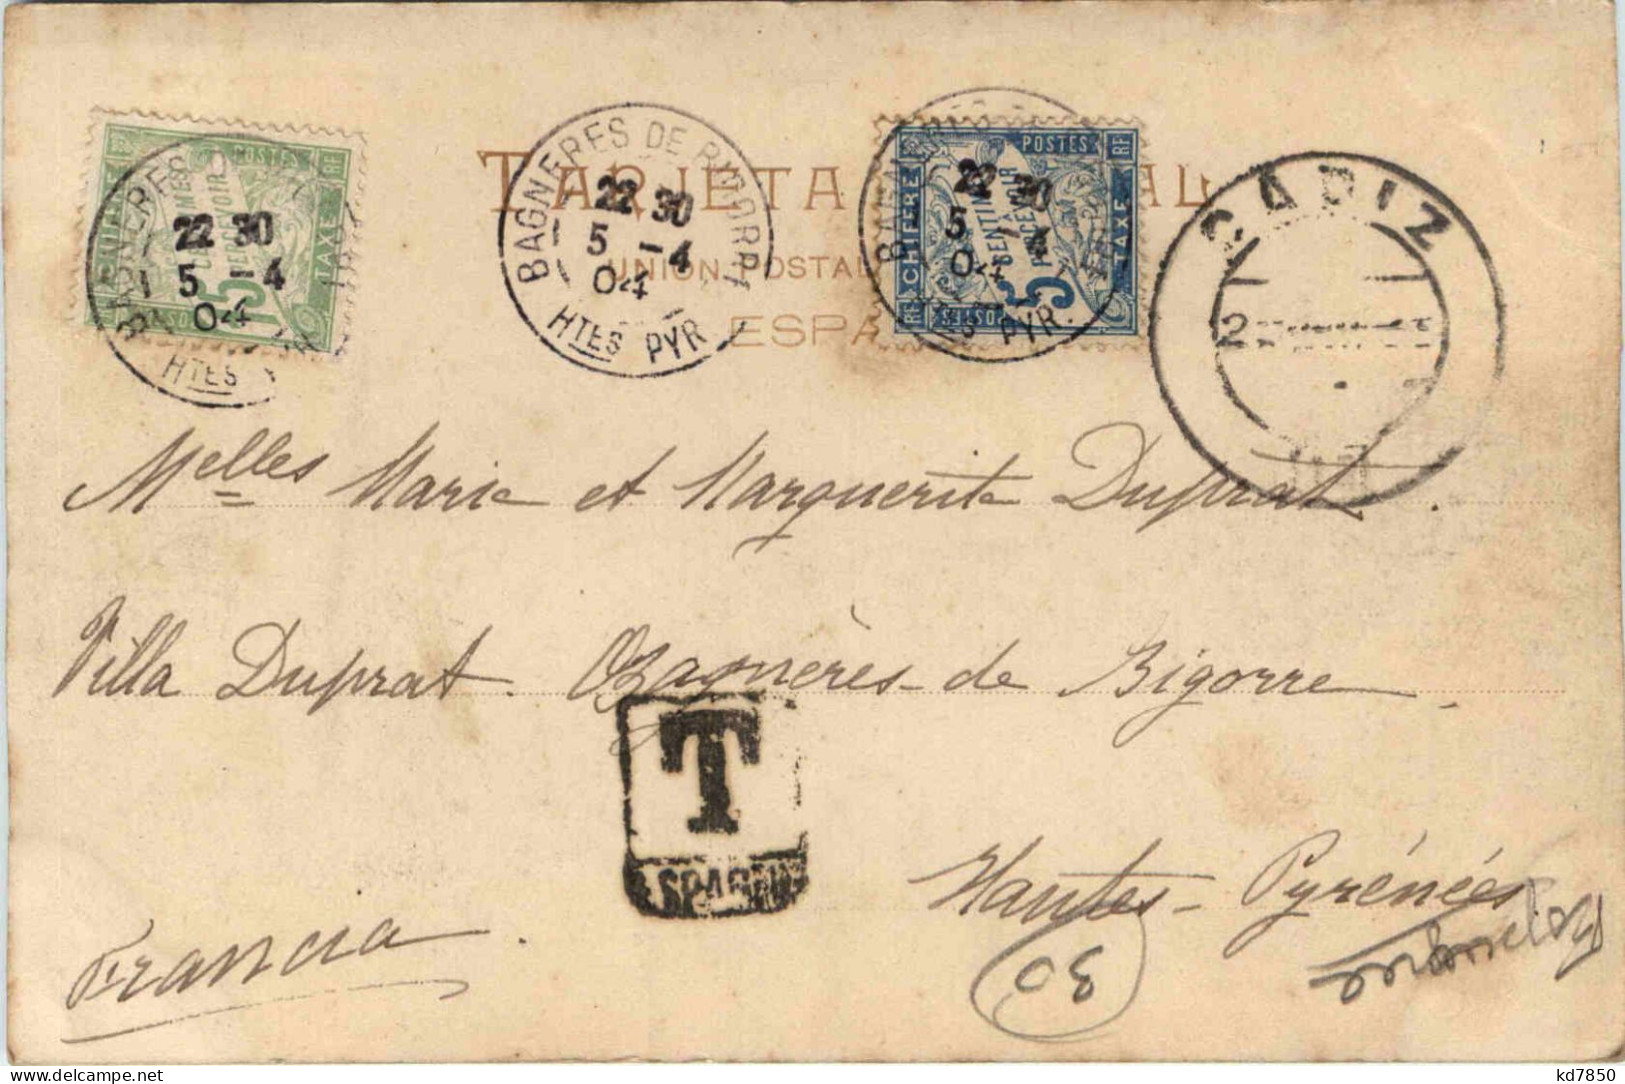 TARJETA POSTAL
UNION POSTAL
ESPAÑA
BAGNERES DE BIGORRE
22 30
5 -4
04
HTES PYR
POSTES
CENTIMES
À
PERCEVOIR
15
TAXE
RF
BAGNERES DE BIGORRE
22 30
5 -4
04
HTES PYR
POSTES
CHIFFRE
5
CENTIMES
À
PERCEVOIR
TAXE
RF
BAGNERES
22 30
5 -4
04
HTES PYR.
CADIZ
2
Melles Marie et Marguerite Duprat.
Villa Duprat. Bagnères-de Bigorre.
T
ESPAGNE
Hautes-Pyrénées
Francia.
30
kd7850